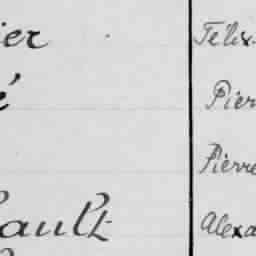 ier Félix
é Pier
Pierre
ault Alexa